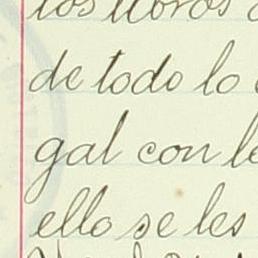 los libros
de todo lo
gal con le
ello se les